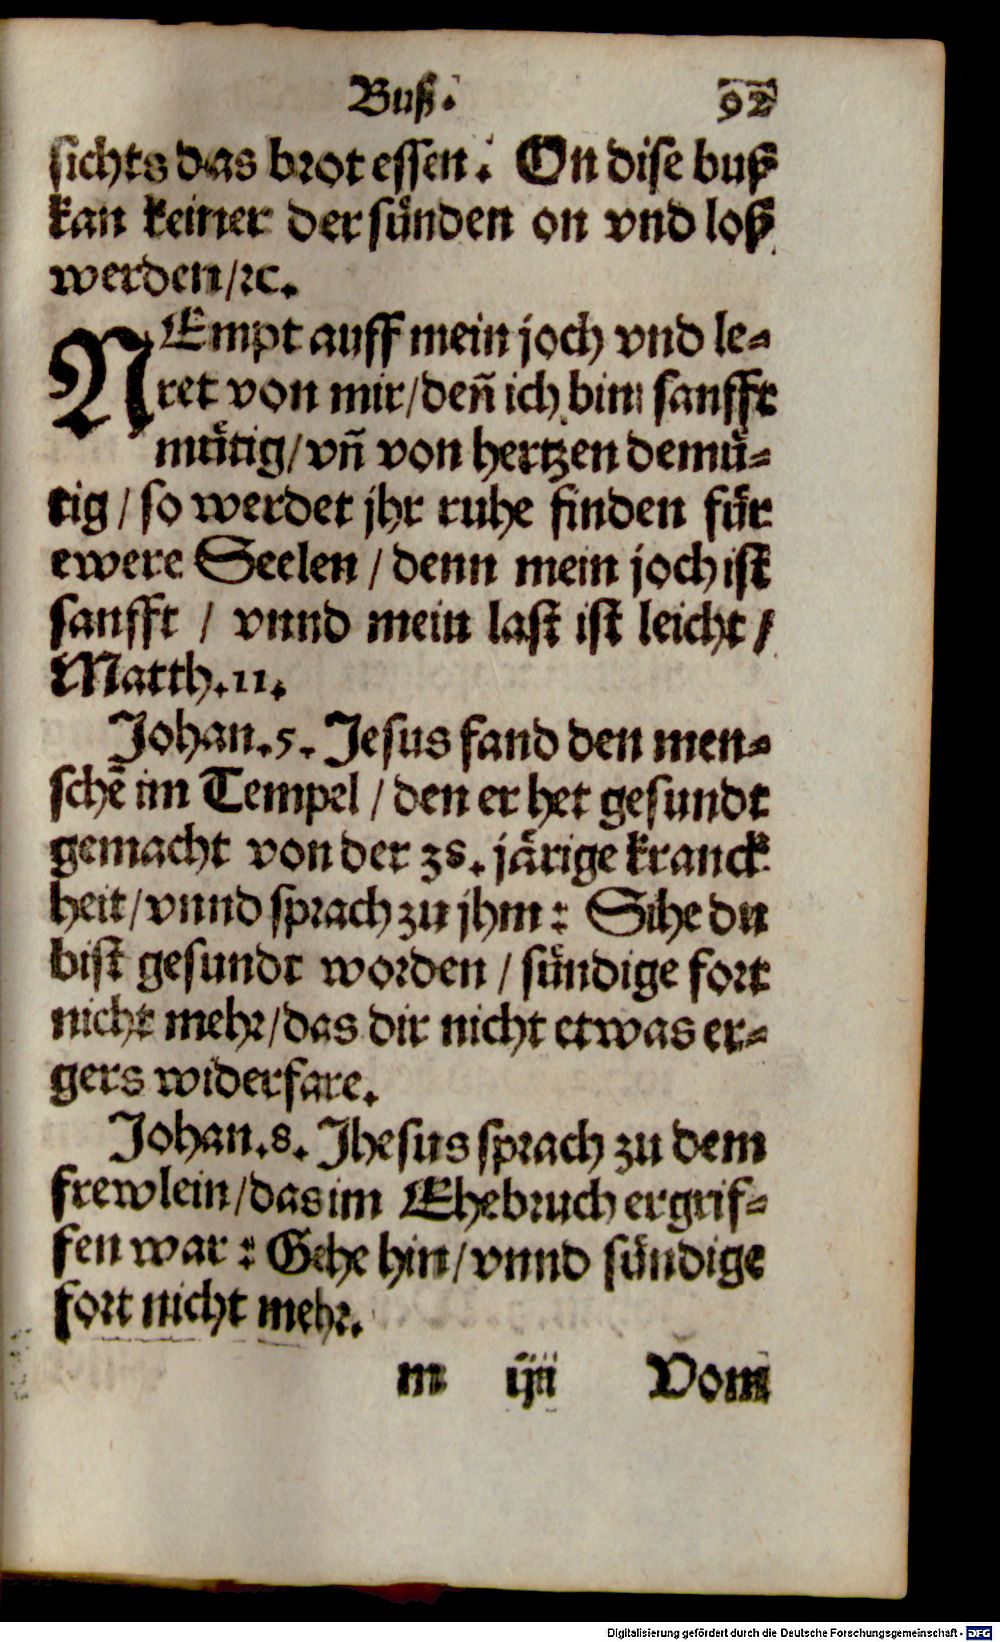 Buß.
92
sichts das brot essen. On dise buß
kan keiner der sünden on vnd loß
werden/ꝛc.
NEmpt auff mein joch vnd le⸗
ret von mir/deñ ich bin sanfft
mütig/vñ von hertzen demü⸗
tig/so werdet jhr ruhe finden für
ewere Seelen/denn mein joch ist
sanfft / vnnd mein last ist leicht/
Matth.11.
Johan.5. Jesus fand den men⸗
schē im Tempel/den er het gesundt
gemacht von der 38. järige kranck
heit/vnnd sprach zu jhm: Sihe du
bist gesundt worden/sündige fort
nicht mehr/das dir nicht etwas er⸗
gers widerfare.
Johan.8. Jhesus sprach zu dem
frewlein/das im Ehebruch ergrif⸗
fen war: Gehe hin/vnnd sündige
fort nicht mehr.
m iiij Vom
Digitalisierung gefördert durch die Deutsche Forschungsgemeinschaft - DFG